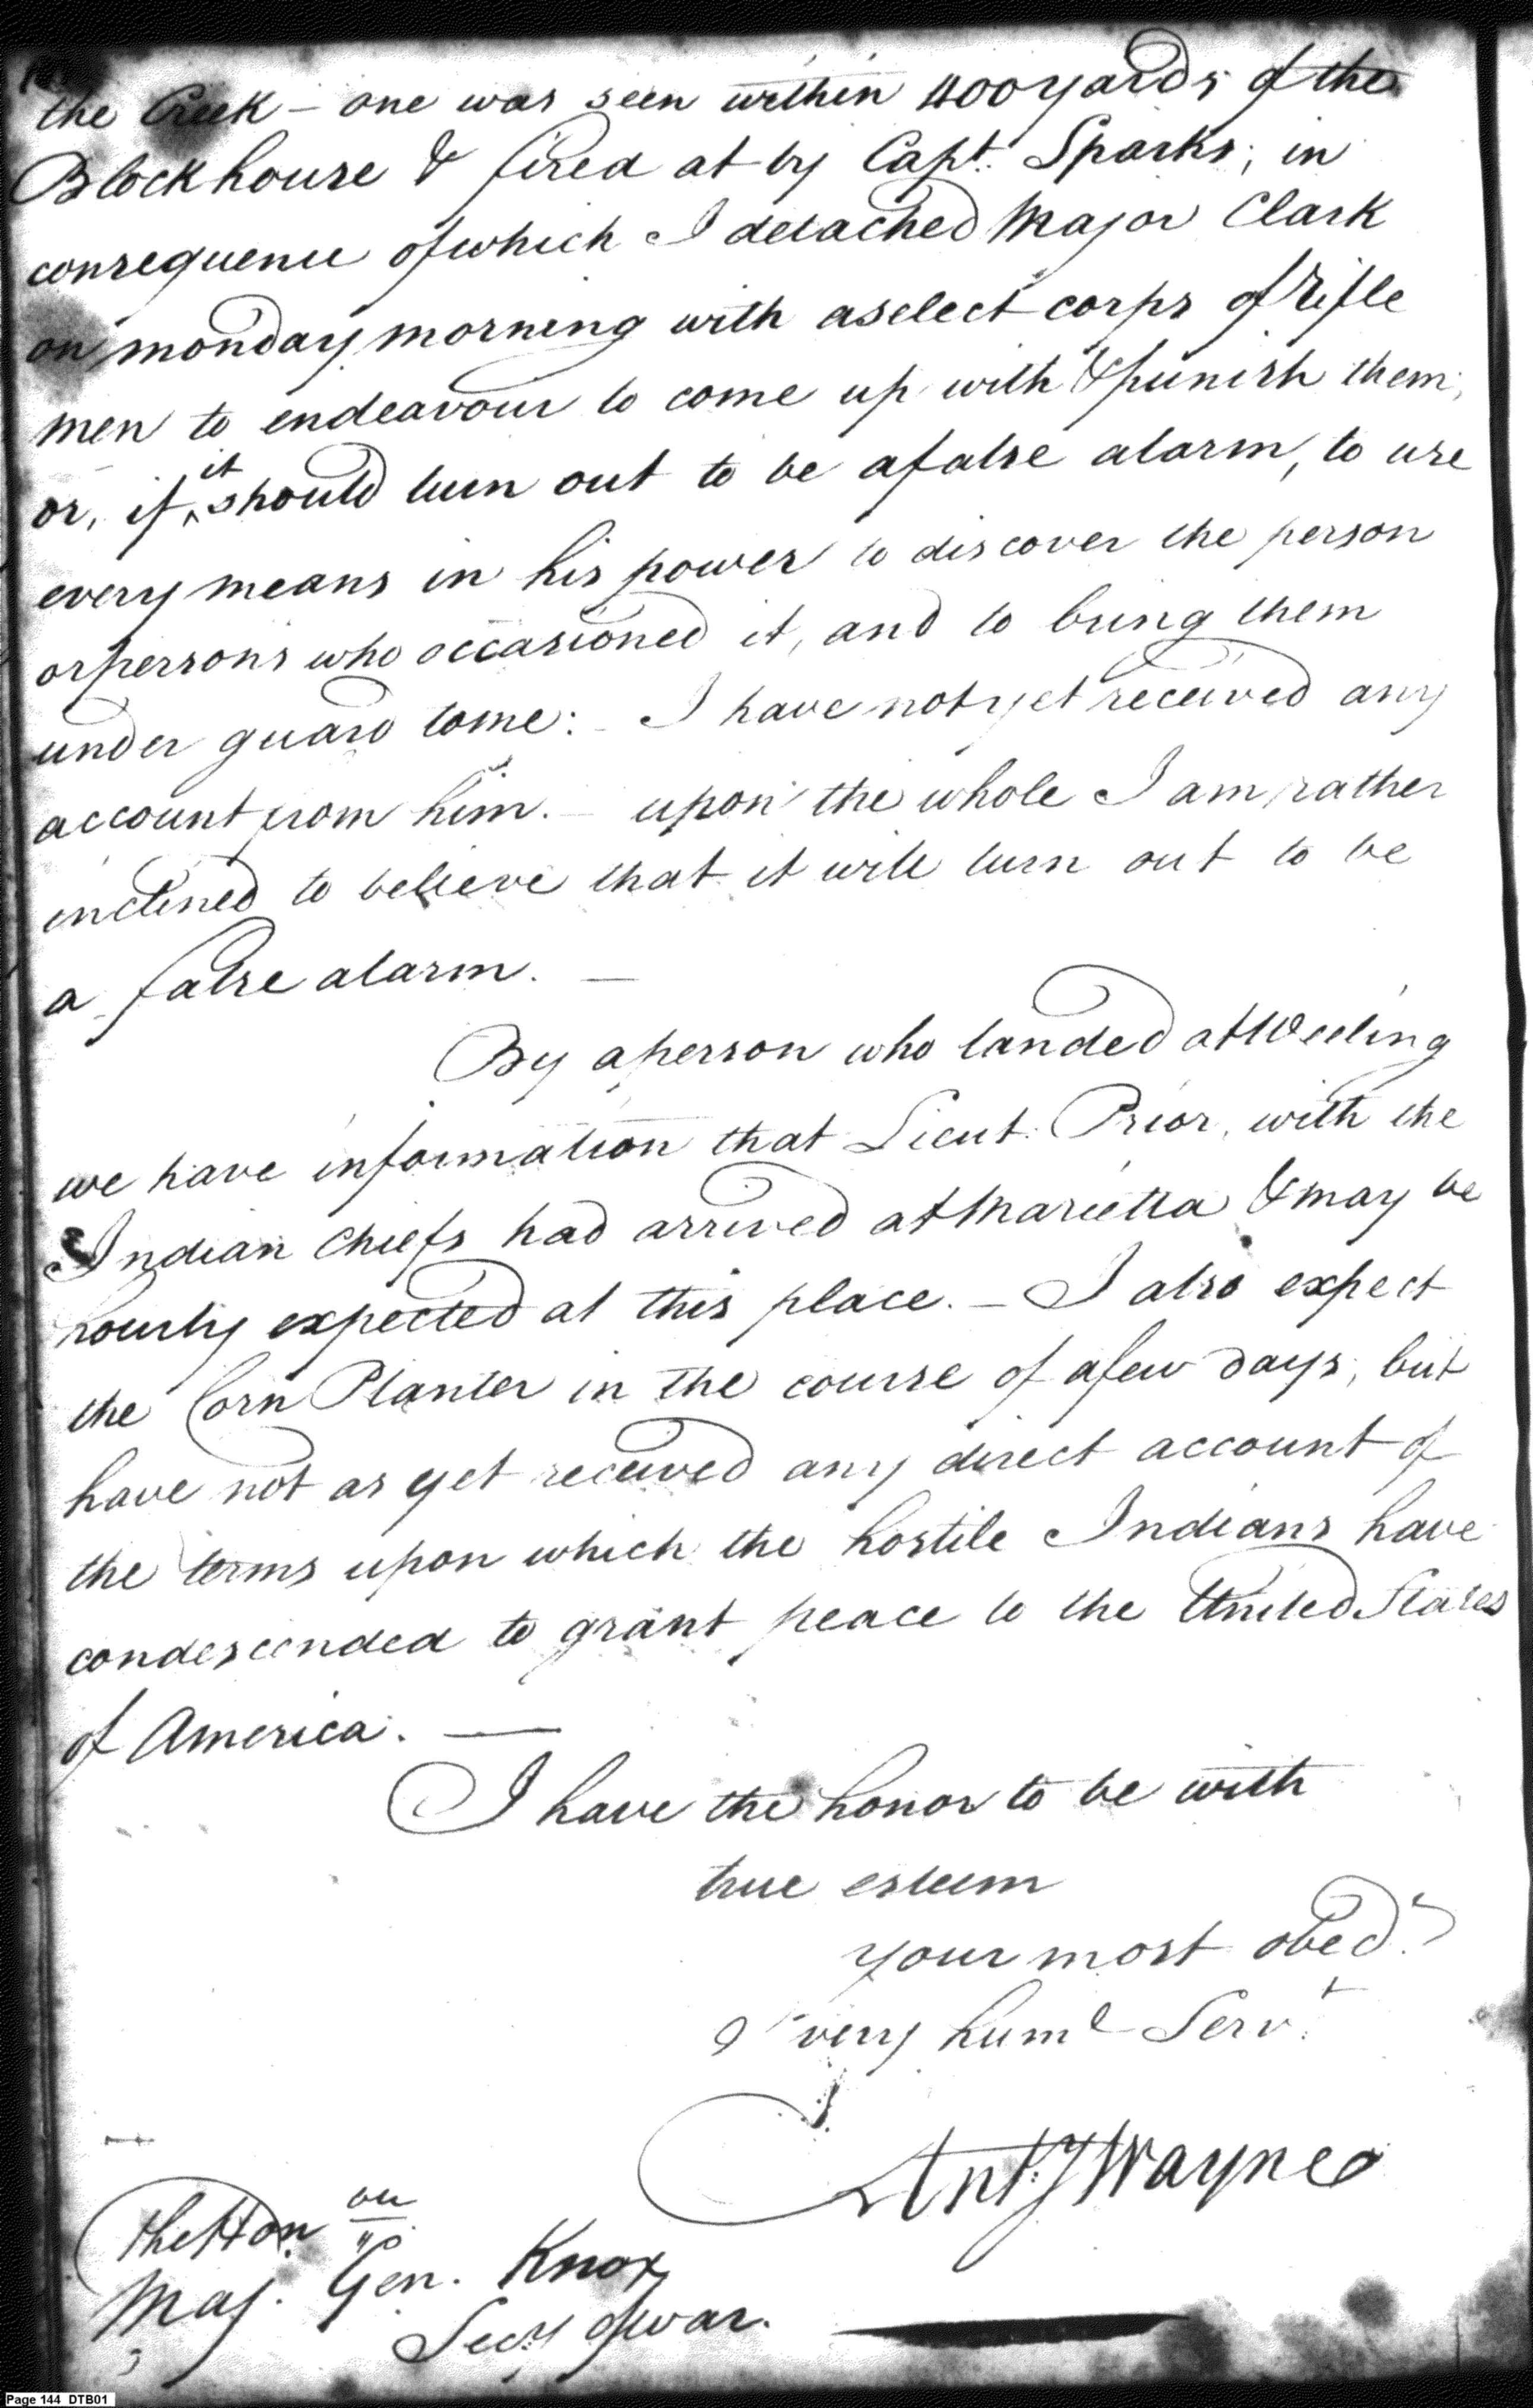 the Creek – one was seen within 400 yards of the
Block house & fired at by Capt. Sparks; in
consequence of which I detached Major Clark
on monday morning with a select corps of Rifle
men to endeavour to come up with & punish them;
or, if it should turn out to be a false alarm, to use
every means in his power to discover the person
or persons who occasioned it, and to bring them
under guard to me: – I have not yet received any
account from him. – upon the whole I am rather
inclined to believe that it will turn out to be
a false alarm. –
By a person who landed at Weeling
we have information that Lieut. Prior, with the
Indian Chiefs had arrived at Marietta & may be
hourly expected at this place. – I also expect
the Corn Planter in the course of a few days; but
have not as yet received any direct account of
the terms upon which the hostile Indians have
condescended to grant peace to the United States
of America. —
I have the honor to be with
true esteem
your most obed.t
& very huml Serv.t
Anty Wayne
The Hon
Maj. Gen. Knox
Secy of war.
Page 144 DTB01